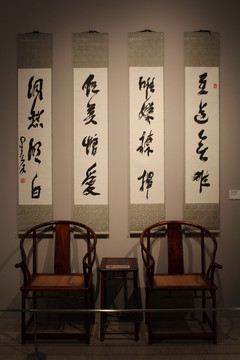 至道無難
唯嫌揀擇
但莫憎愛
洞然明白